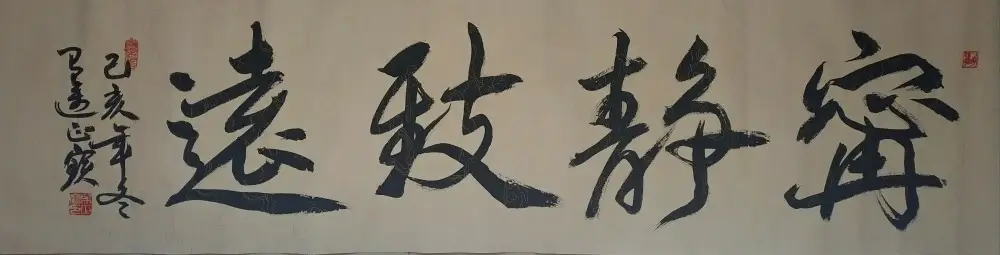 寧靜致遠
己亥年冬
正寳